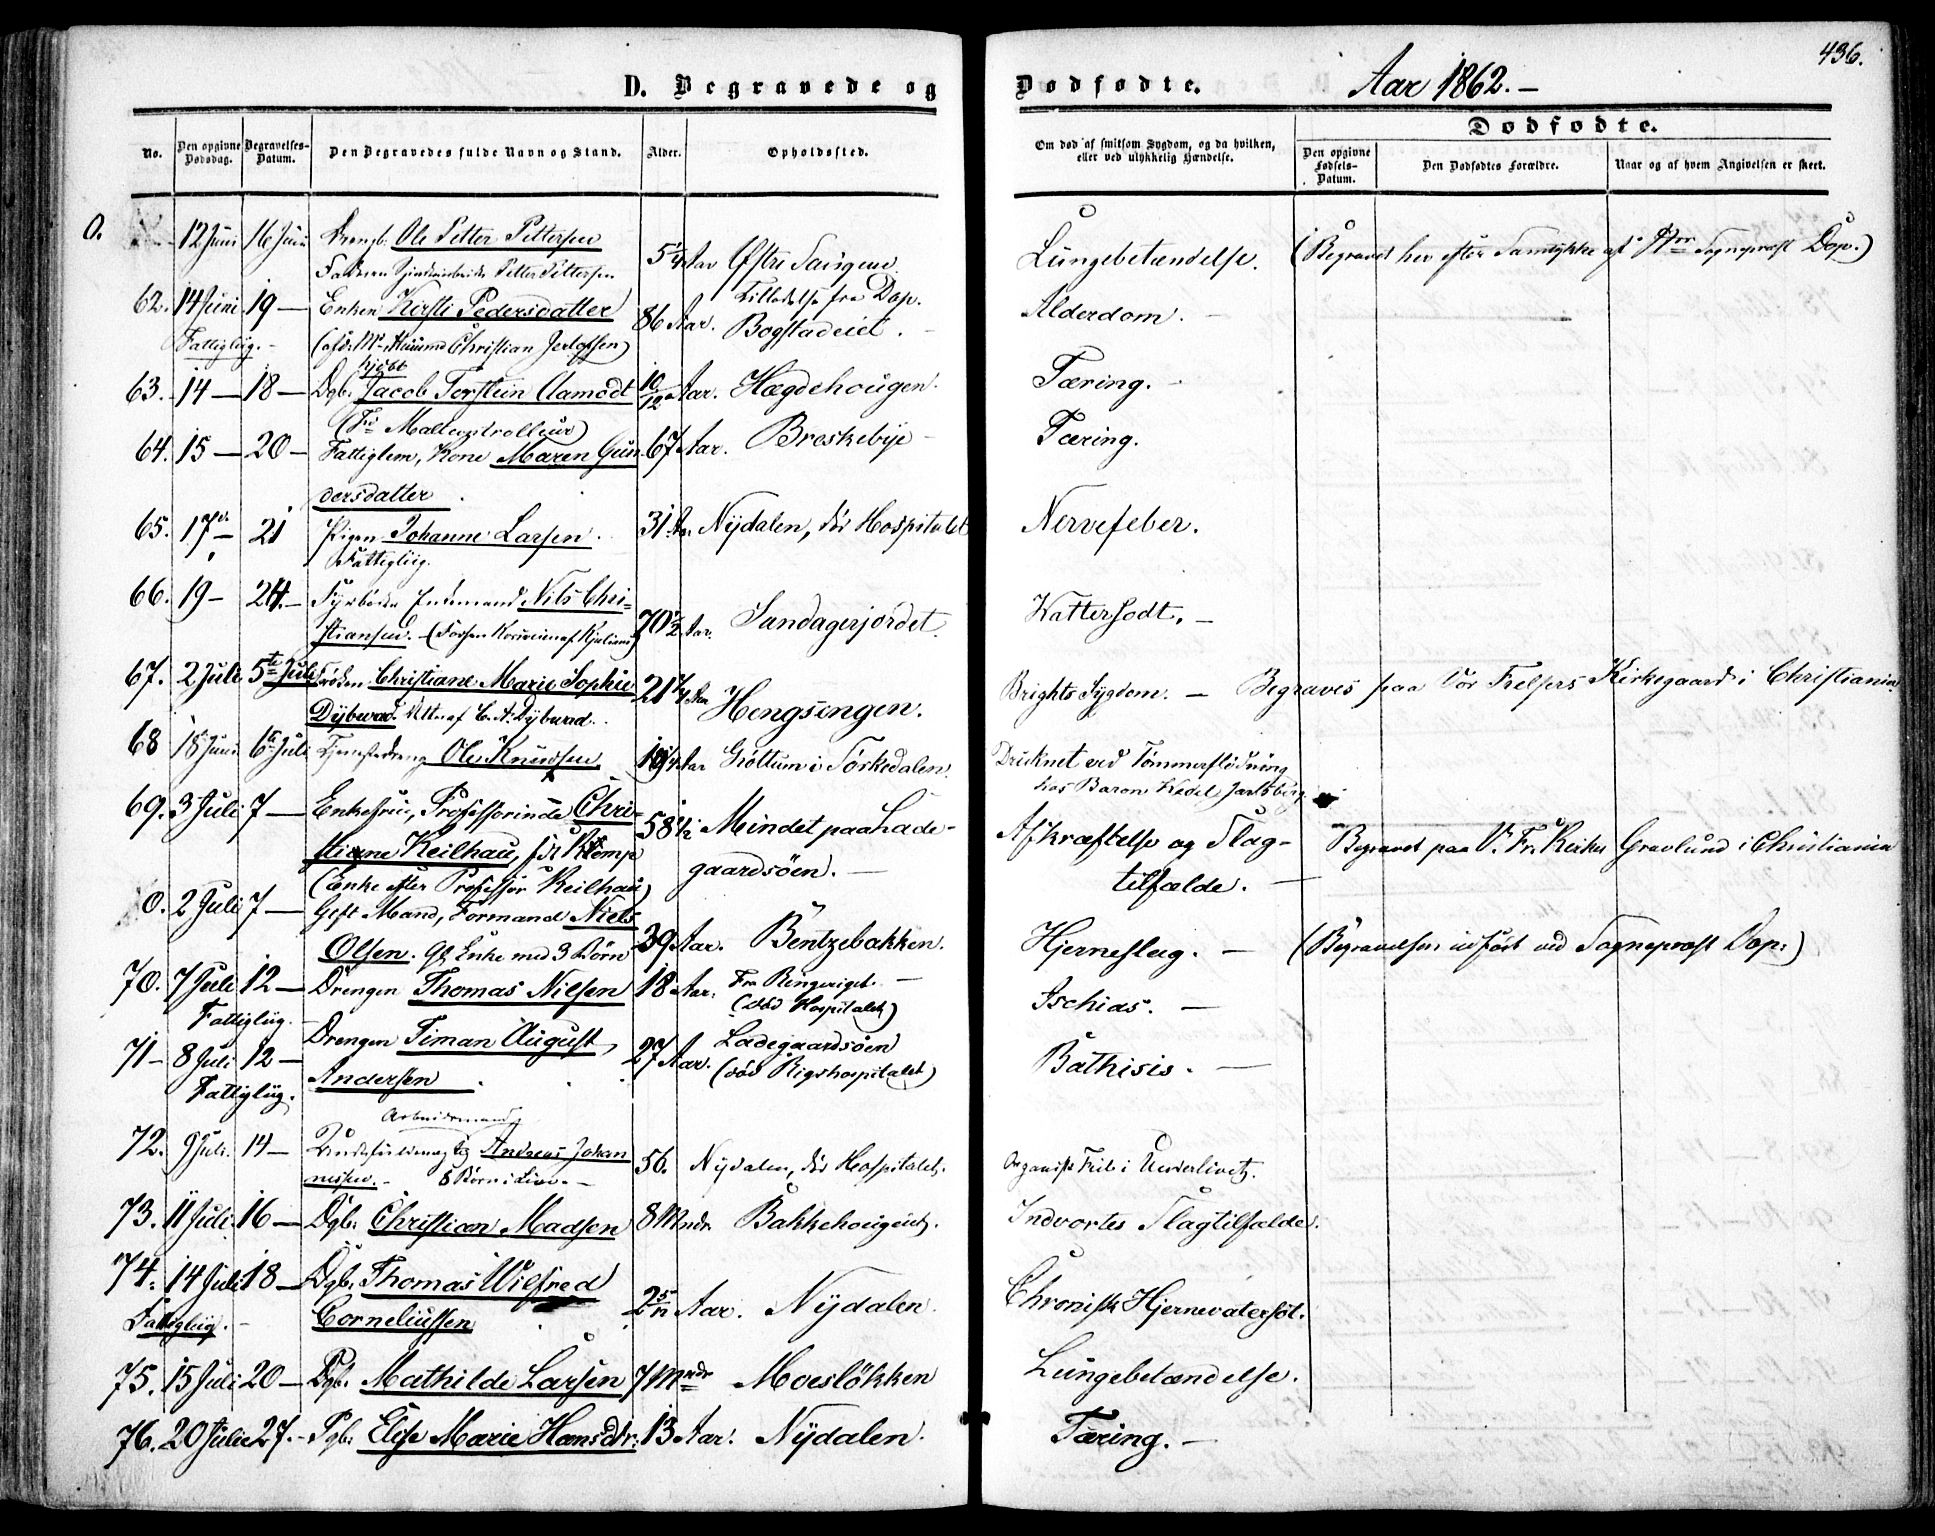 436.
D. Begravede og Dødfødte. Aar 1862.-
Dødfødte.
No. Den opgivne Dødsdag. Begravelses-Datum. Den Begravedes fulde Navn og Stand. Alder. Opholdssted. Om død af smitsom Sygdom, og da hvilken, eller ved ulykkelig Hændelse. Den opgivne Fødsels-Datum. Den Dødfødtes Forældre. Naar og af hvem Angivelsen er skeet.
0. 12 Juni 16 Juni Drengb. Ole Petter Pettersen 5 1/4 Aar Østre Lungebetændelse. (Begravet her efter Samtykke af Hr Sognepræst Dop.)
Faderen Petter Pettersen Tilladelse fra Dop.
62. 14 Juni 19 — Enken Kirsti Pedersdatter 86 Aar. Bogstadeiet. Alderdom. —
Fattiglig. - Christian
63. 14 — 18 — Dgb. Jacob Torstein Aamodt 10/12 Aar. Hægdehougen. Tæring. -
64. 15 — 20 — Fattiglem, Kone Maren Gun- 67 Aar. Breskebye Tæring.
dersdatter
65. 17de — 21 Pigen Johanne Larsen. 31 Aar Nydalen, dør Hospitalet Nervefeber.
Fattiglig.
66. 19 — 24. — Fyrbøder Enkemand Nils Chri- 70 1/2 Aar. Sandagerjordet. Vattersodt. -
stiansen. -
67. 2 Juli 5te Juli Frøken Christiane Marie Sophie 21 1/4 Aar Hengsengen. Brights Sygdom. — Begraves paa Vor Frelsers Kirkegaard i Christiania
Dybwad. Dtr af C. A. Dybwad.
68 18 Juni 6te Juli Tjenestedreng Ole Knudsen Grøttum i Sørkedalen. Druknet ved Tømmerflødning
hos Baron Wedel Jarlsberg.
69. 3 Juli 7 — Enkefrue, Professorinde Chri- 58 1/2 Mindet paa Lade- Afkræftelse og Slag- Begravet paa V. Fr. Kirkes Gravlund i Christiania
stiane Keilhau, født Kemp gaardsøen. — tilfælde. —
(Enke efter Professor Keilhau)
0. 2 Juli 7 — Gift Mand, Formand Niels 39 Aar. Bentzebakken. Hjerneslag. — (Begravelsen udført ved Sognepræst Dop.)
Olsen. Enke med 3 Børn
70. 7 Juli 12 — Drengen Thomas Nilsen 18 Aar. Fra Ringeriget. — Ischias. —
Fattiglig. (død Hospitalet)
71 - 8 Juli 12 — Drengen Timan August 27 Aar. Ladegaardsøen Bathisis. —
Fattiglig. Andersen (død Rigshospitalet)
Arbeidsmand
72. 9 Juli. 14 — Andreas Johan- 56. Nydalen, dør Hospitalet. Organisk Feil i Underlivet.
nesen. - 8 Børn i Live. -
73. 11 Juli. 16 — Dgb. Christian Madsen 8 Mndr Bakkehougen. Indvortes Slagtilfælde.
74. 14 Juli 18 — Dgb. Thomas Wilfred 2 5/12 Aar. Nydalen. Chronisk Hjernevatersot.
Fattiglig. - Corneliussen
75. 15 Juli 20 — Pgb. Mathilde Larsen 7 Mndr Moesløkken Lungebetændelse.
76. 20 Juli 27. - Pgb. Elise Marie Hansdtr. 13 Aar. Nydalen. Tæring. -